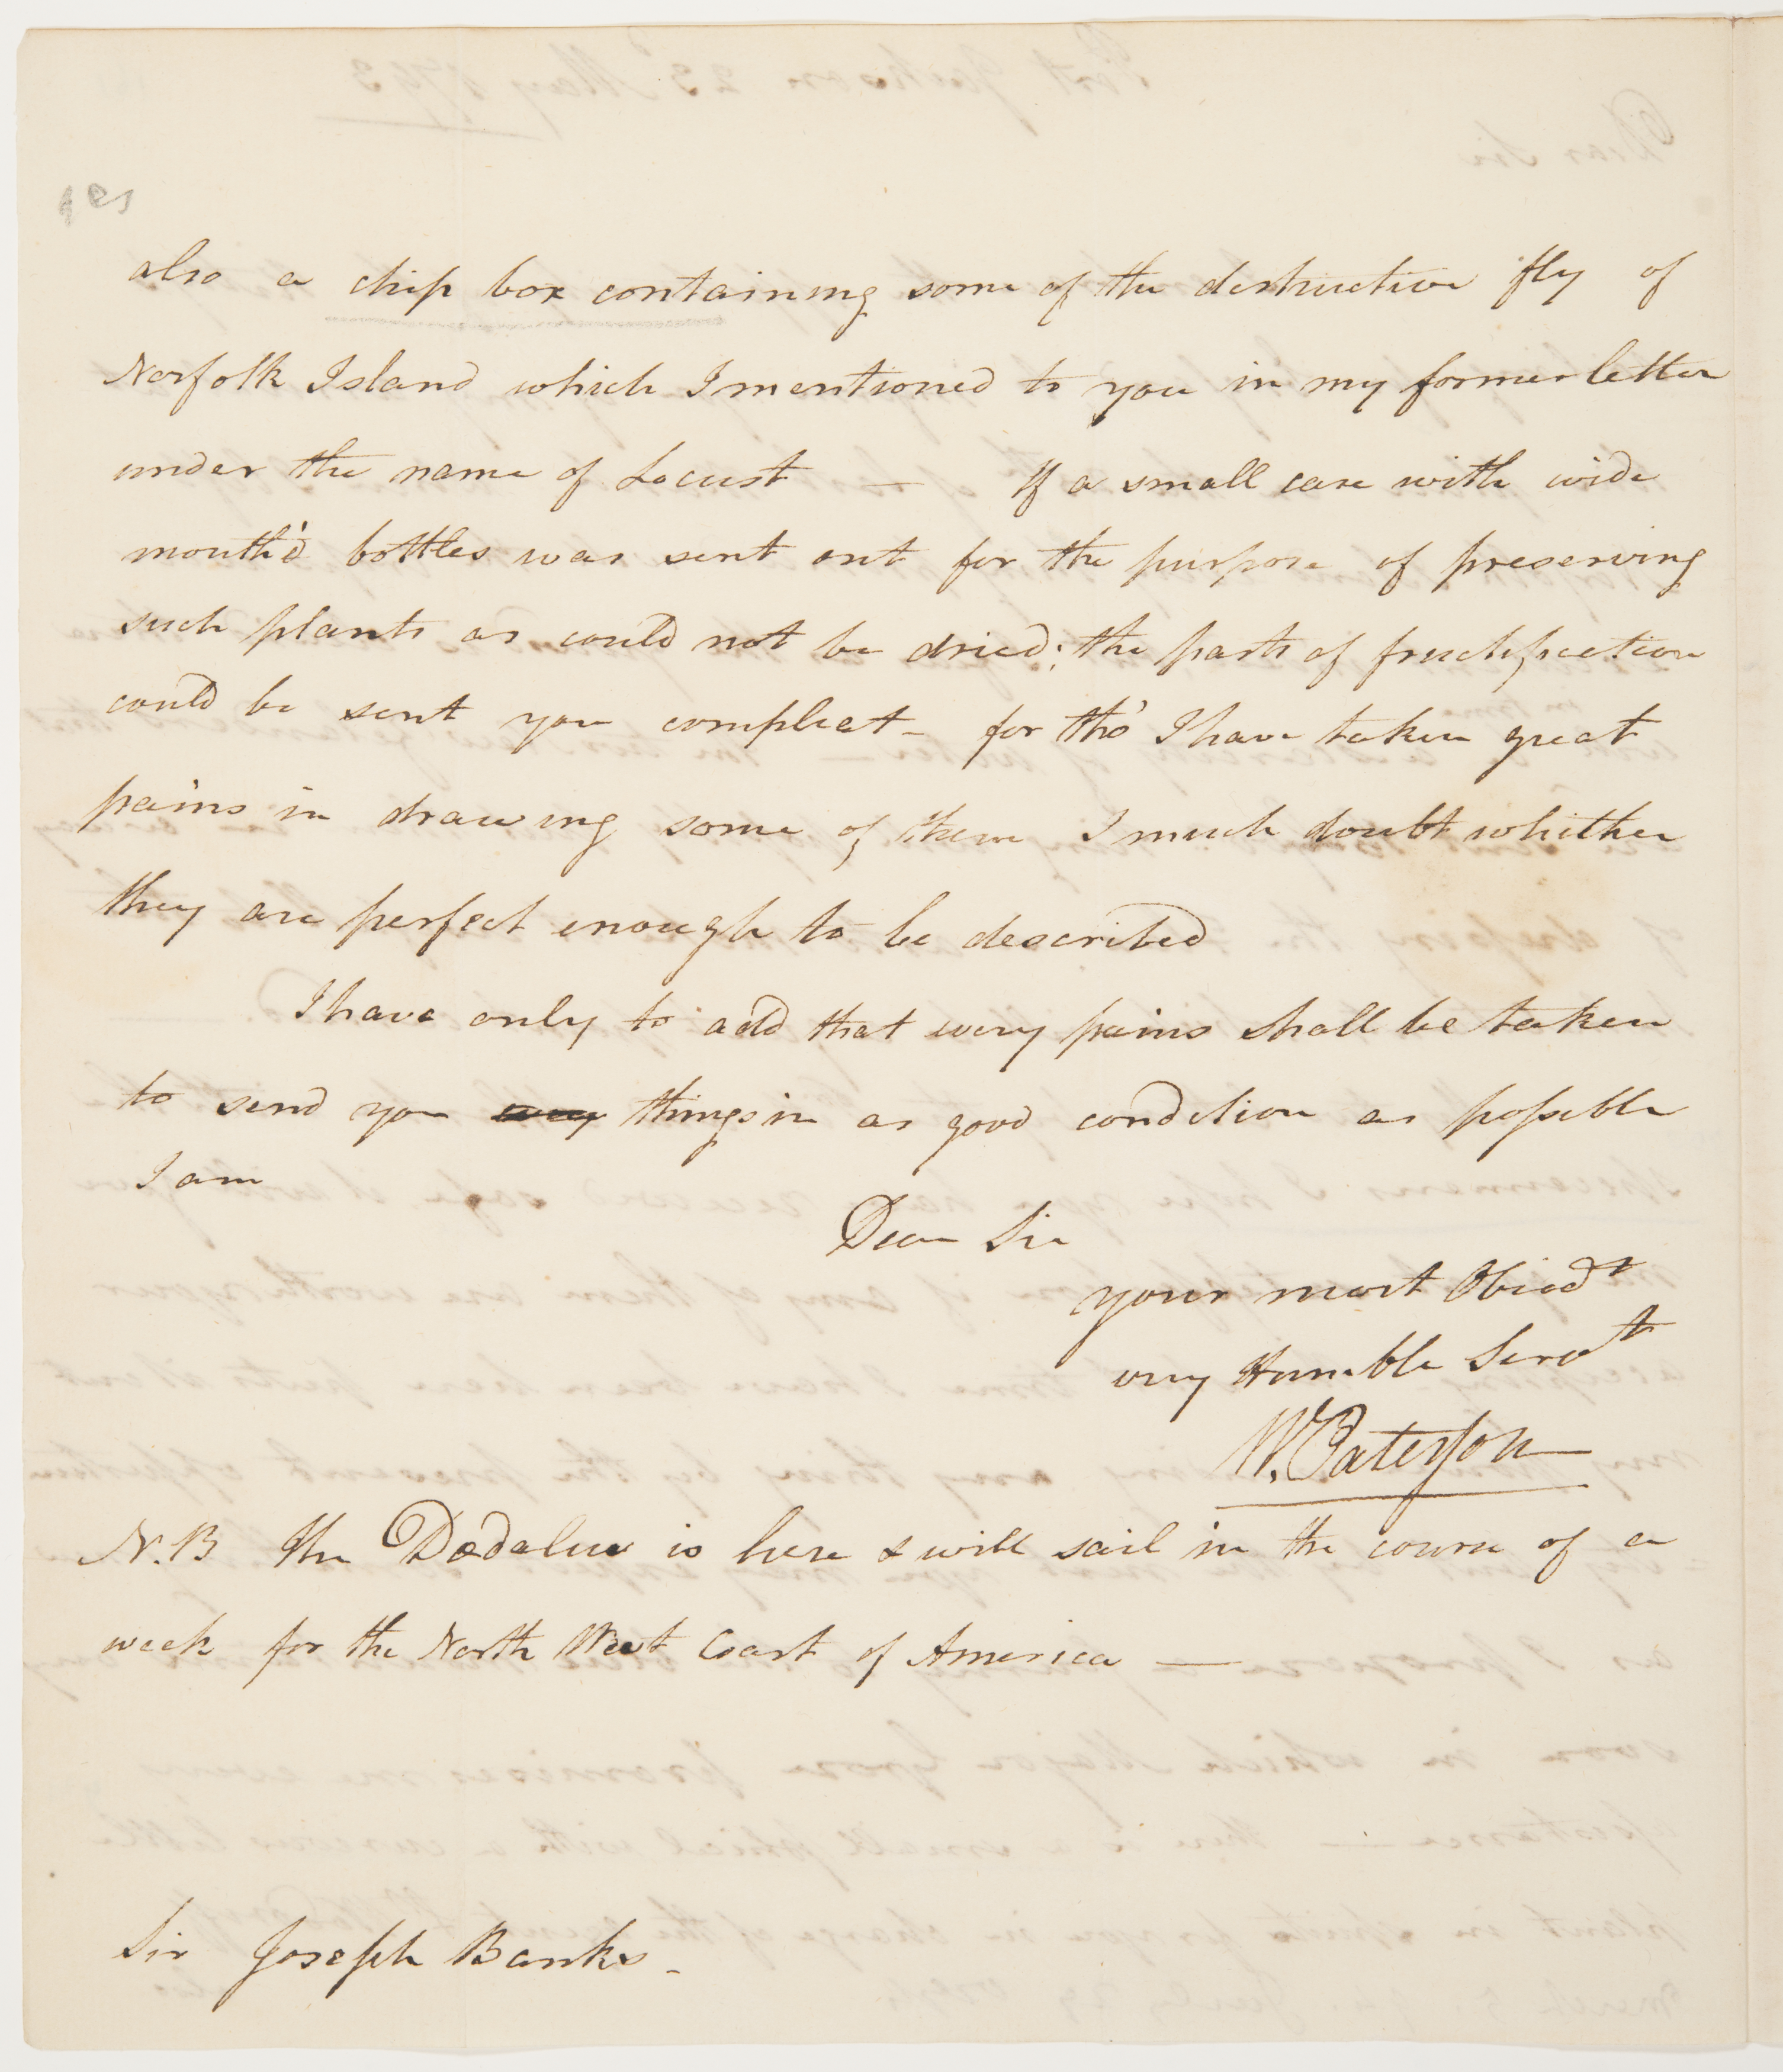 also a chip box containing some of the destructive fly of
Norfolk Island which I mentioned to you in my former letter
under the name of Locust — If a small case with wide
mouth'd bottles was sent out for the purpose of preserving
such plants as could not be dried; the parts of fructification
could be sent you compleat – for tho' I have taken great
pains in drawing some of them I much doubt whither
they are perfect enough to be described
I have only to add that every pains shall be taken
to send you every things in as good condition as possible
I am
Dear Sir
your most Obiedt
very Humble Servt
W. Paterson
N.B the Dædalus is here & will sail in the course of a
week for the North West Coast of America —
Sir Joseph Banks –